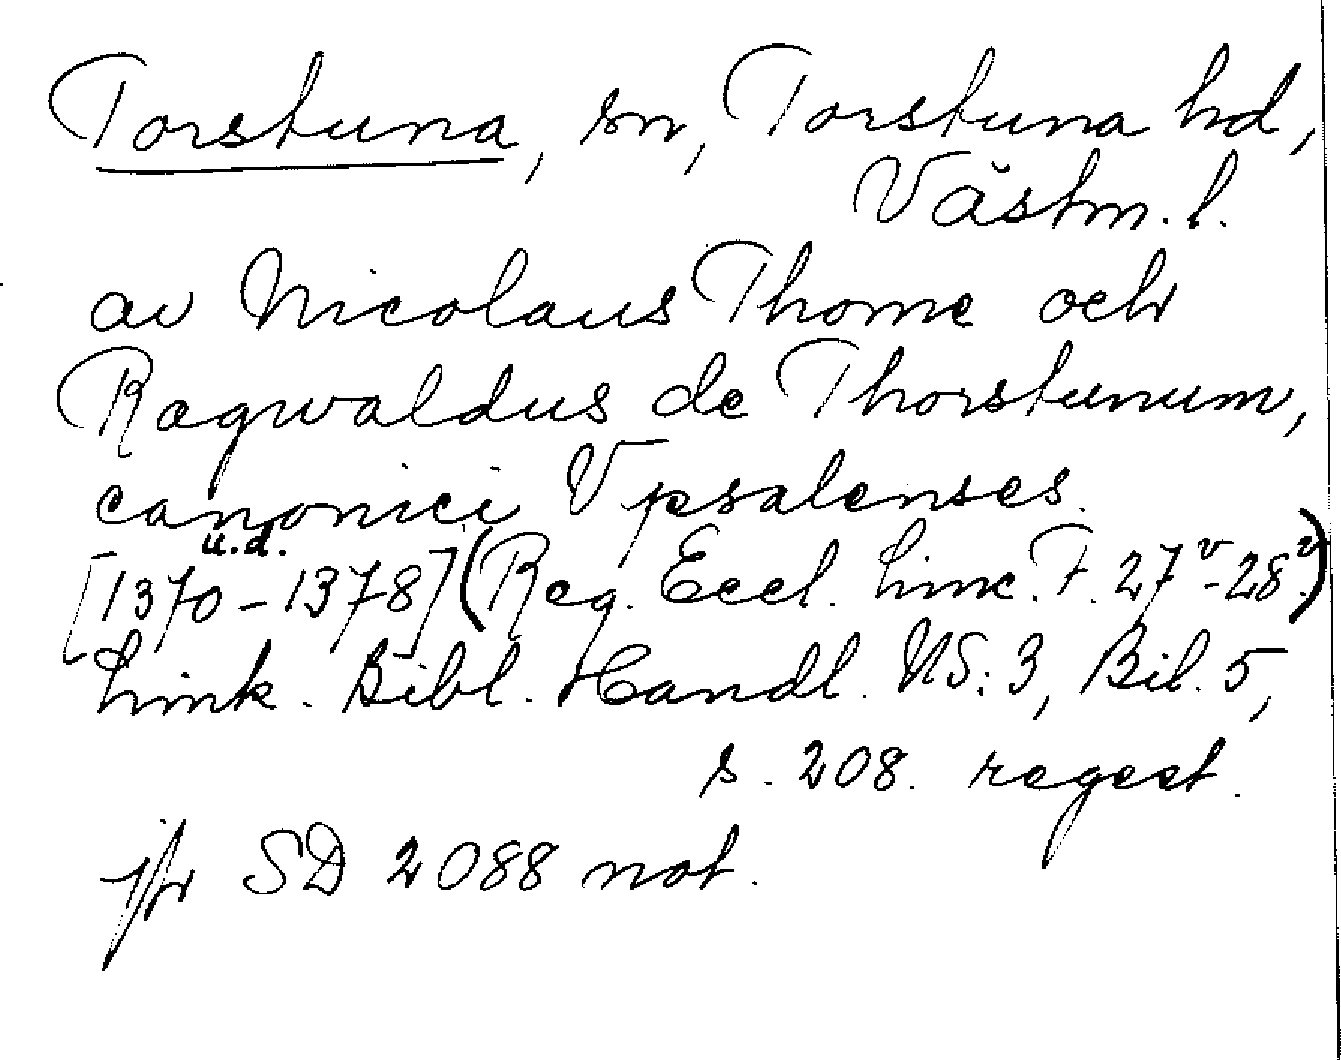 Torstuna, sn, Torstuna hd,
Västm. l.
av Nicolaus Thome och
Ragwaldus de Thorstunum,
canonici Vpsalenses.
u.d.
[1370-1378] (Reg. Eccl. Linc. F. 27v-28v)
Link. Bibl. Handl. NS: 3, Bil. 5,
s. 208. regest.
jfr SD 2088 not.